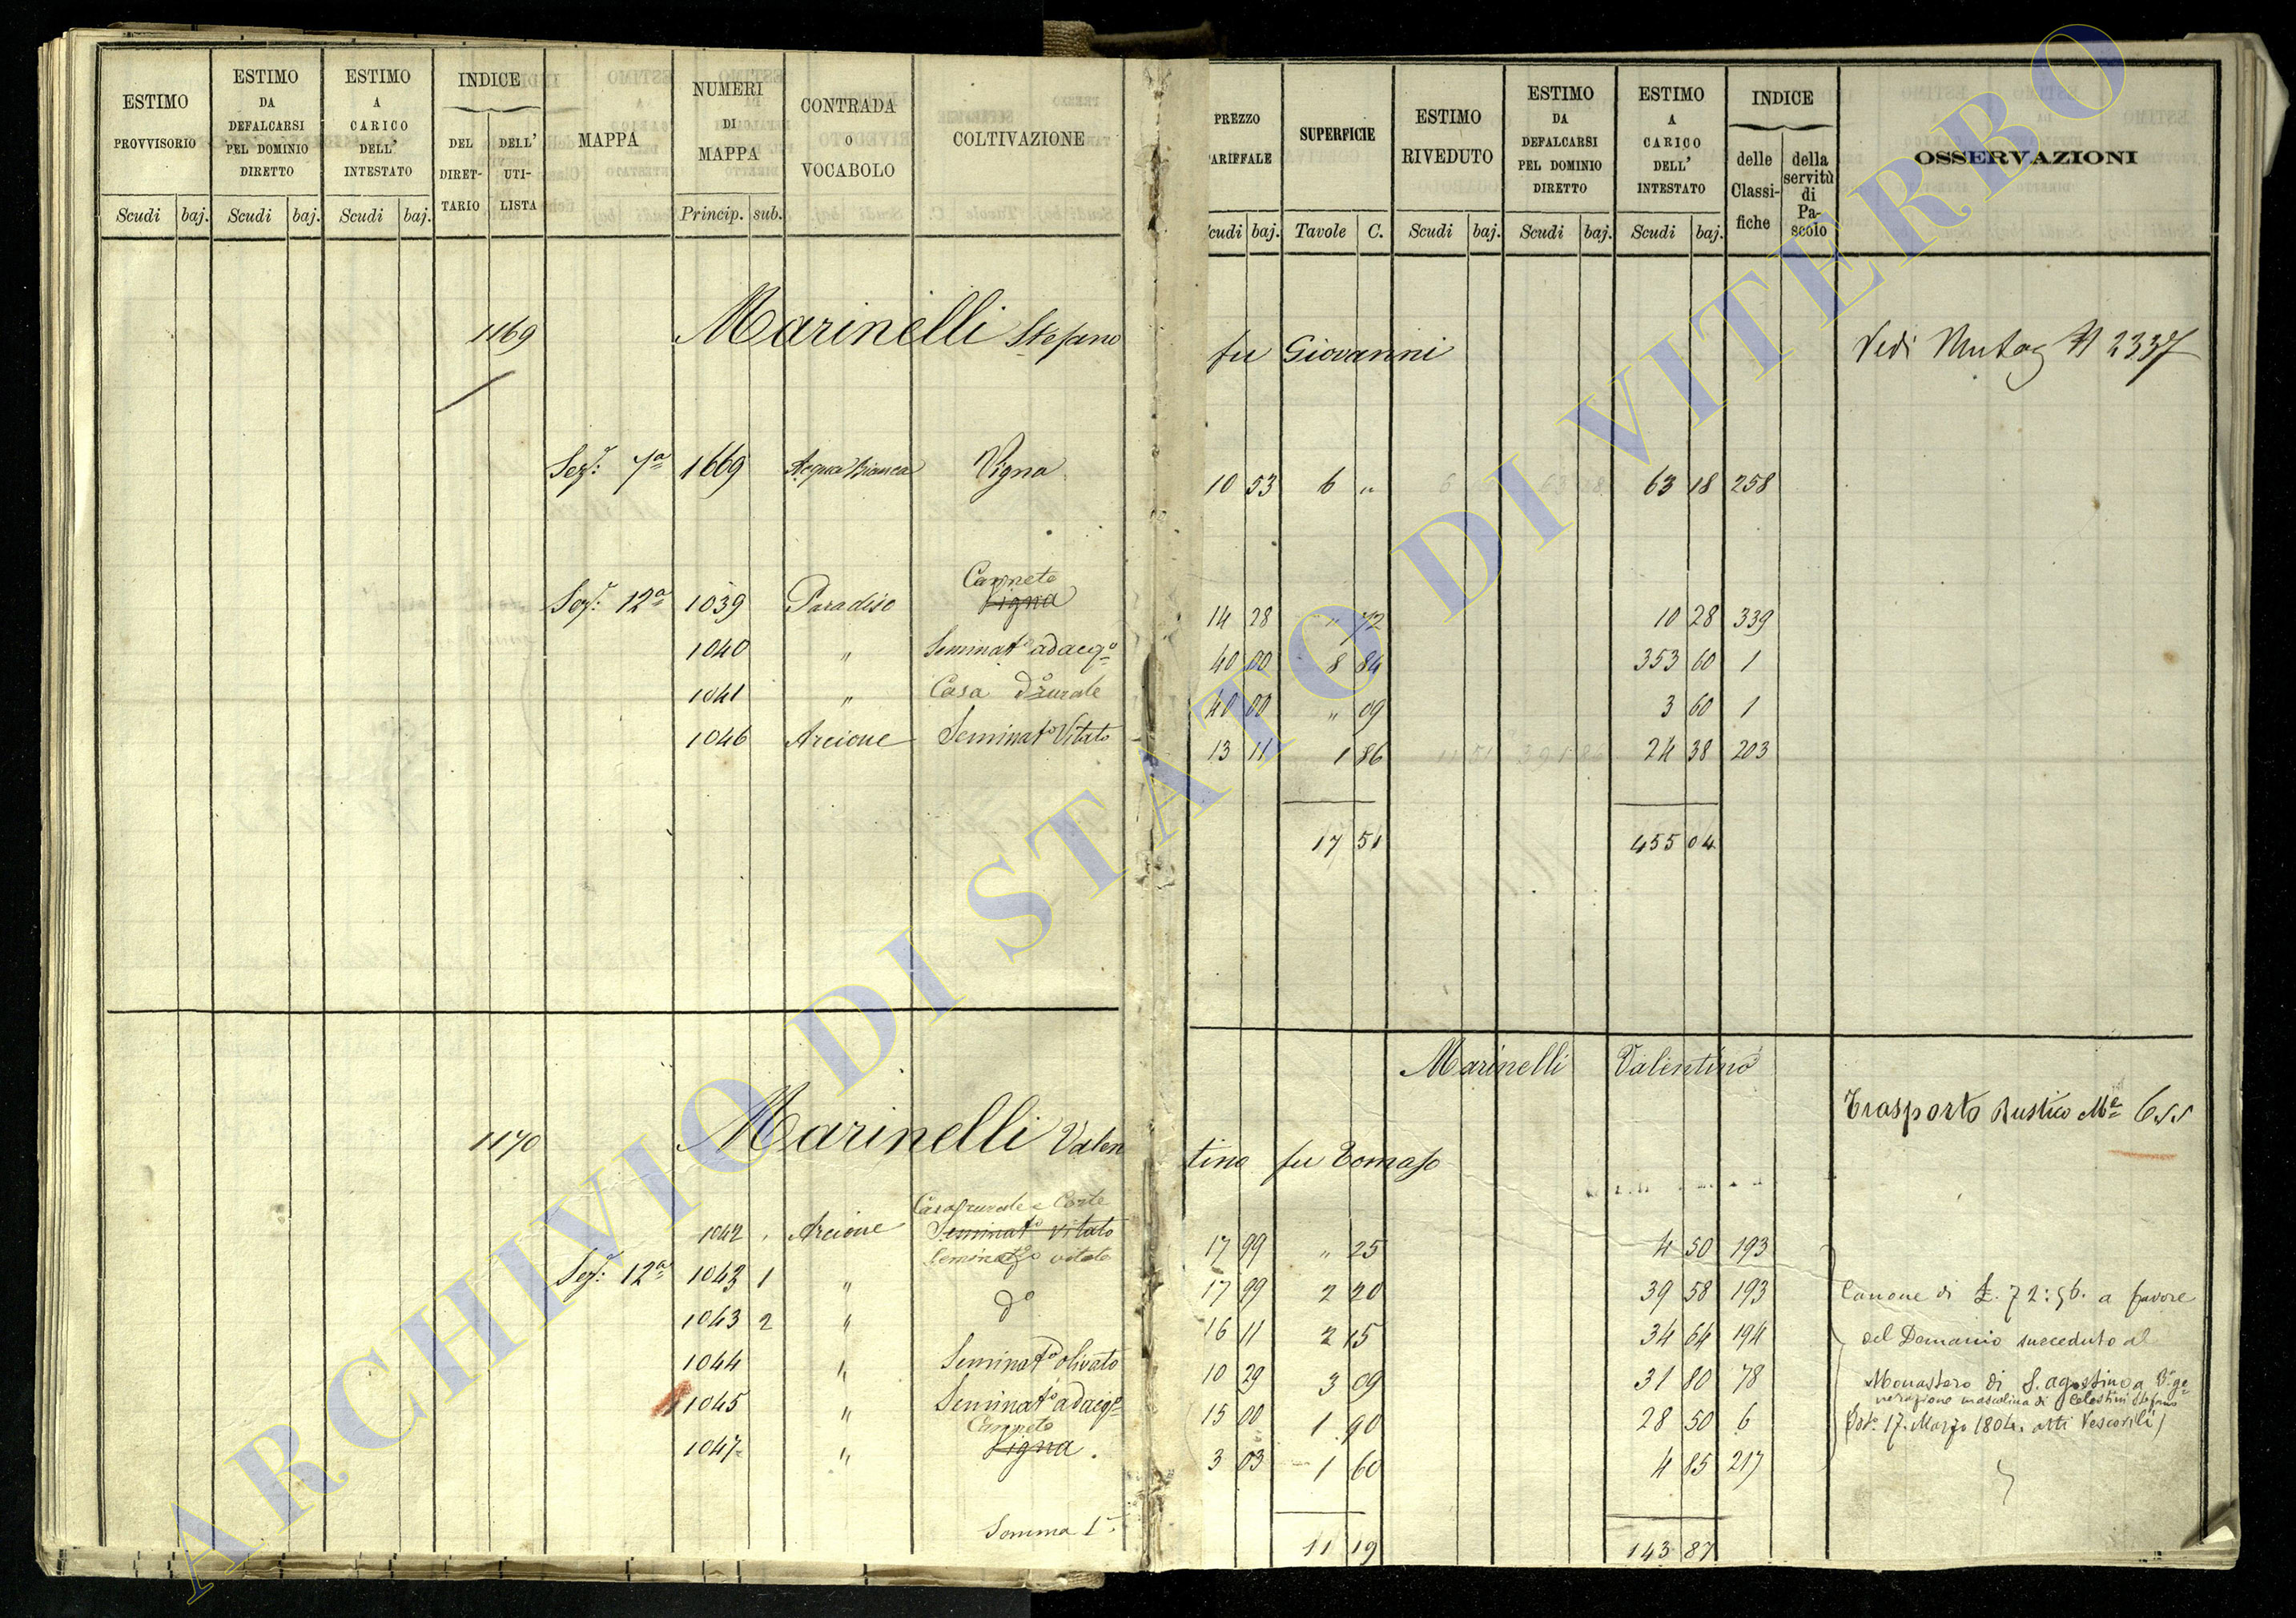 ESTIMO PROVVISORIO
ESTIMO DA DEFALCARSI PEL DOMINIO DIRETTO
ESTIMO A CARICO DELL' INTESTATO
INDICE
DEL DIRET-TARIO
DELL' UTI-LISTA
MAPPA
NUMERI DI MAPPA
CONTRADA O VOCABOLO
COLTIVAZIONE
PREZZO TARIFFALE
SUPERFICIE
ESTIMO RIVEDUTO
ESTIMO DA DEFALCARSI PEL DOMINIO DIRETTO
ESTIMO A CARICO DELL' INTESTATO
INDICE
delle Classi-fiche
della servitù di Pa-scolo
OSSERVAZIONI
Scudi baj. Scudi baj. Scudi baj. Princip. sub. Scudi baj. Tavole C. Scudi baj. Scudi baj. Scudi baj.
1169 Marinelli Stefano fu Giovanni Vedi Mutaz N 2337
Sez: 7a 1669 Acqua Bianca Vigna 10 53 6 " 63 18 258
Canneto
Sez: 12a 1039 Paradiso Vigna 14 28 " 72 10 28 339
1040 " Seminato adacqo 40 00 8 84 353 60 1
1041 " Casa do rurale 40 00 " 09 3 60 1
1046 Arcione Seminato Vitato 13 11 1 86 24 38 203
17 51 455 04
Marinelli Valentino
Trasporto Rustico Me 655
1170 Marinelli Valentino fu Tomaso
Casa rurale e Corte
1042 Arcione Seminato vitato 17 99 " 25 4 50 193
Seminato vitato
Sez: 12a 1043 1 " 17 99 2 20 39 58 193
1043 2 " do 16 11 2 15 34 64 194
1044 " Seminato olivato 10 29 3 09 31 80 78
1045 " Seminato adacqo 15 00 1 90 28 50 6
Canneto
1047 " Vigna 3 03 1 60 4 85 217
Canone di £. 72:56. a favore
del Demanio succeduto al
Monastero di S. Agostino a 3a ge=
nerazione mascolina di Celestini Stefano
17. Marzo 1804. atti Vescovili
Somma 11 19 143 87
ARCHIVIO DI STATO DI VITERBO